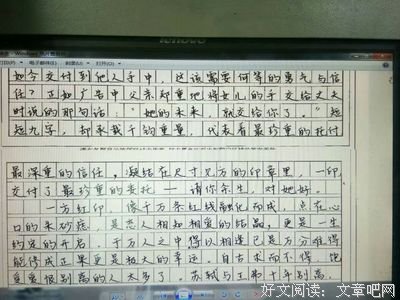 lenovo
Windows
电子邮件(E)
打开(O)
如今交付到他人手中,这该需要何等的勇气与信
任?正如广告中父亲郑重地将女儿的手交给丈夫
时说的那句话:“她的未来,就交给你了。”短
短九字,却承载千钧重量,代表着最珍重的托付
最深重的信任,凝结在尺寸见方的印章里,一印,
交付了最珍重的委托——请你余生,对她好。
一方红印,像千万条红线融化而成,点在心
口的朱砂痣,是恋人相知相爱的结晶,更是一生
约定的开启。于万人之中得以相逢已是万分难得
能修成正果更是极大的幸运。自古求而不得,饱
受爱恨别离的人太多了。苏轼与王弗十年别离,
好文阅读:文章吧网